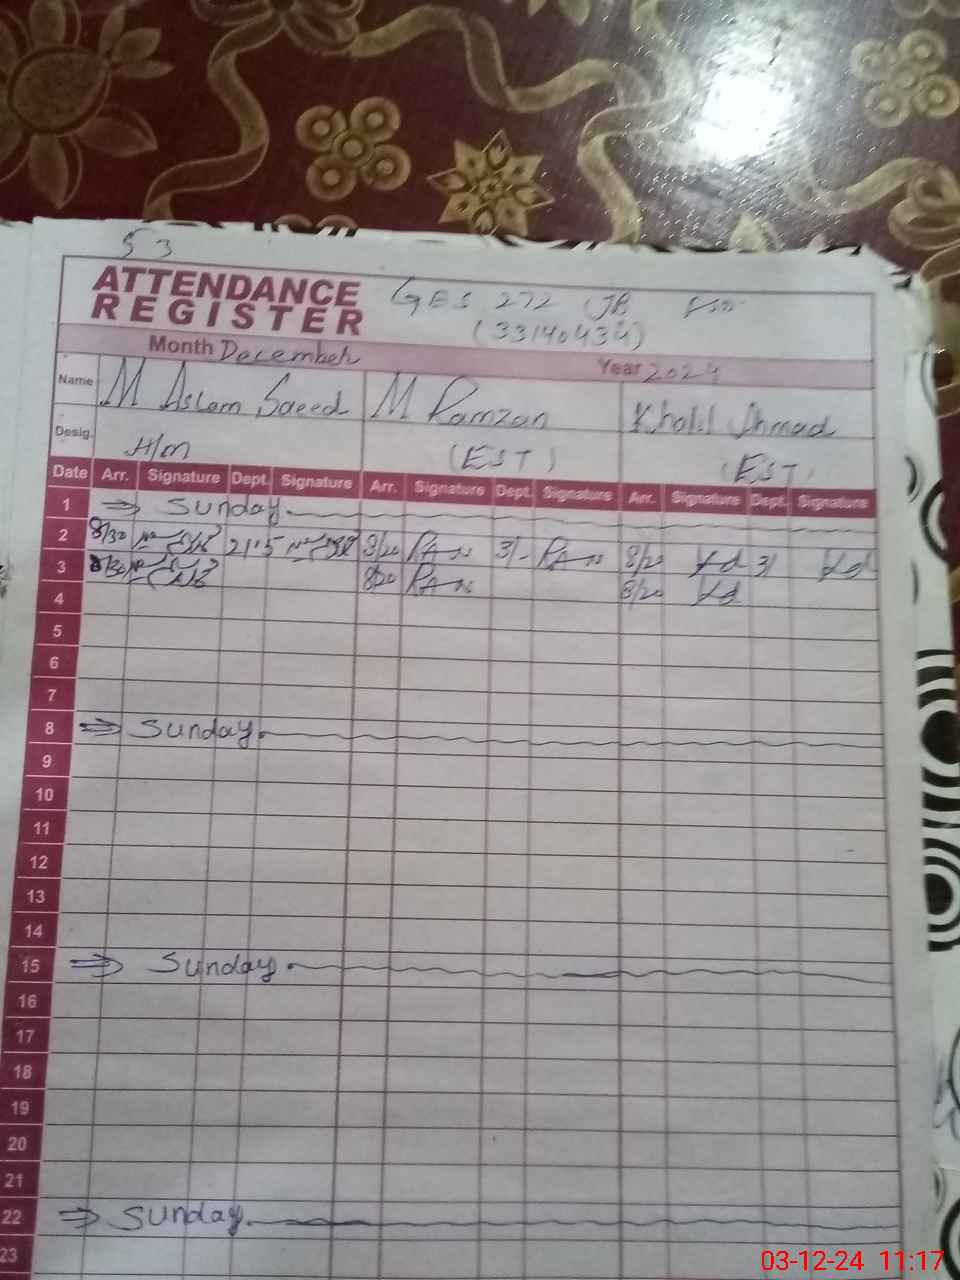 53
ATTENDANCE REGISTER GES 272 JB
(33140434)
Month December Year 2024
Name M Aslam Saeed M Ramzan Khalil Ahmad
Desig. H/M (EST) (EST)
Date Arr. Signature Dept. Signature Arr. Signature Dept. Signature Arr. Signature Dept. Signature
1 ⇒ Sunday
2 8/30 2/15 8/20 3/- 8/20 3/
3 8/30 8/20 8/20
4
5
6
7
8 ⇒ Sunday
9
10
11
12
13
14
15 ⇒ Sunday
16
17
18
19
20
21
22 ⇒ Sunday
23
03-12-24 11:17